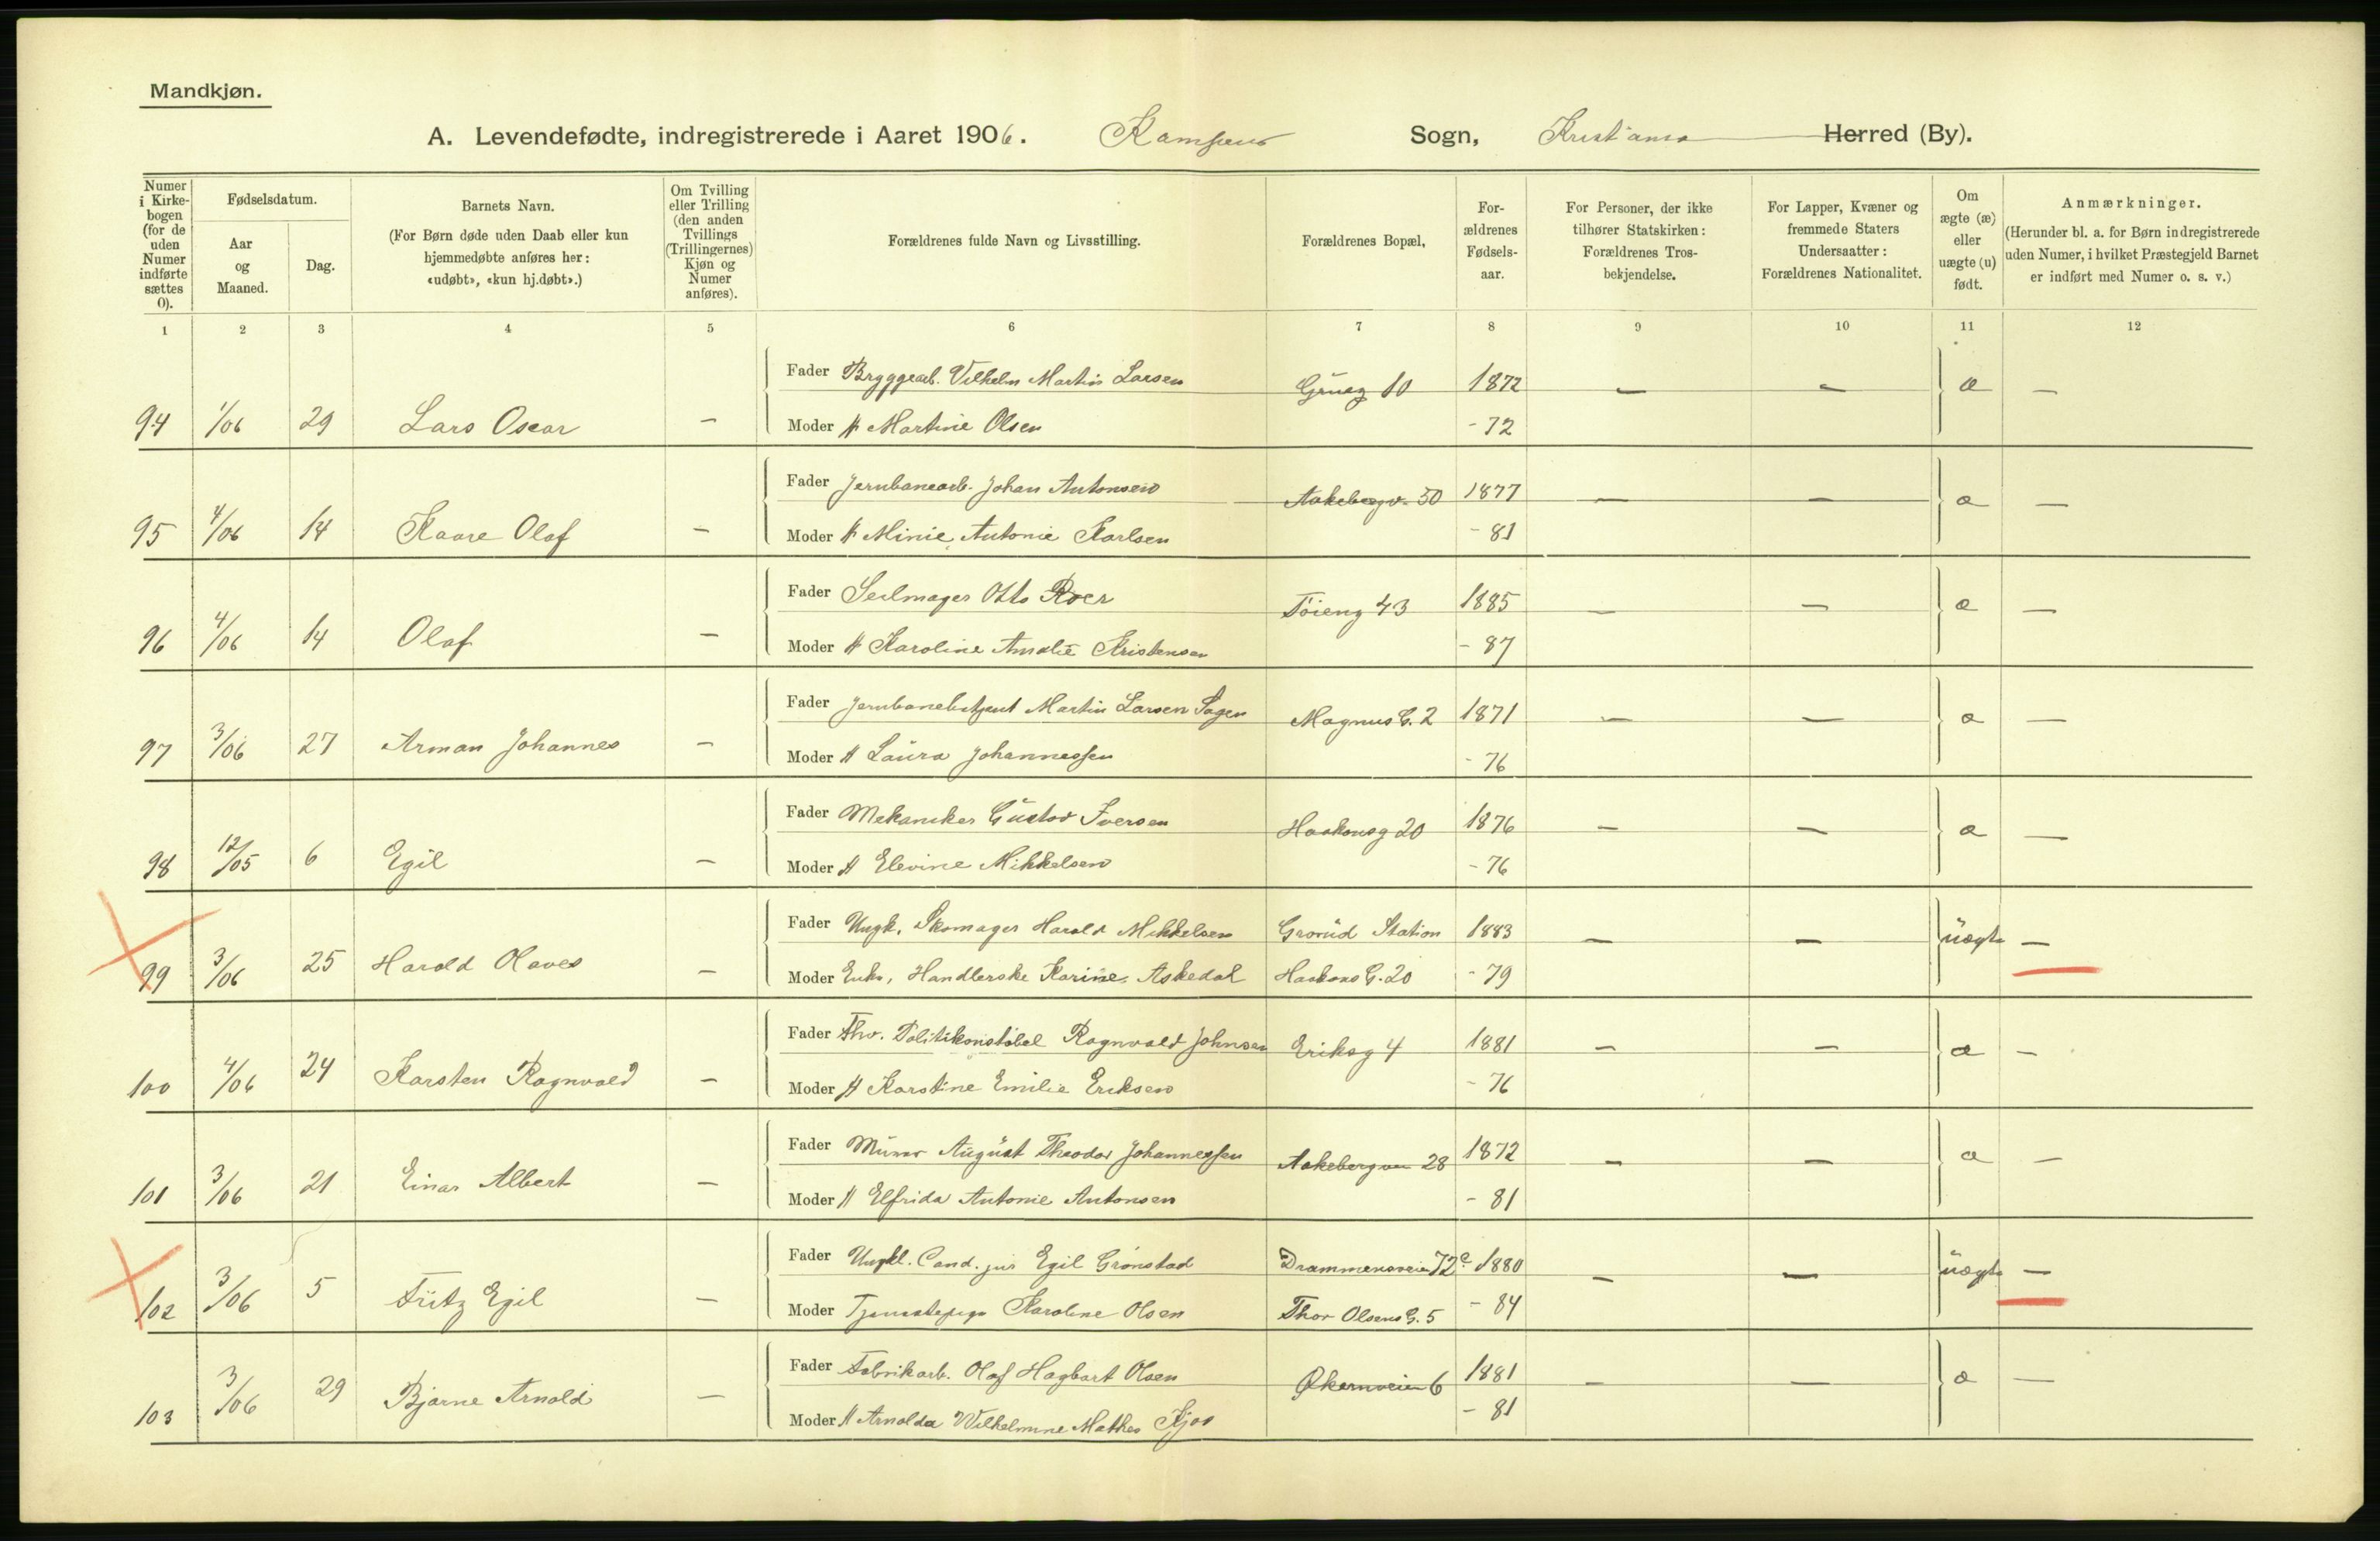 Mandkjøn.
A. Levendefødte, indregistrerede i Aaret 1906. Kampens Sogn, Kristiania Herred (By).
Numer i Kirkebogen (for de uden Numer indførte sættes 0).
Fødselsdatum.
Aar og Maaned.
Dag.
Barnets Navn.
(For Børn døde uden Daab eller kun hjemmedøbte anføres her: «udøbt», «kun hj.døbt».)
Om Tvilling eller Trilling (den anden Tvillings (Trillingernes) Kjøn og Numer anføres).
Forældrenes fulde Navn og Livsstilling.
Forældrenes Bopæl,
Forældrenes Fødselsaar.
For Personer, der ikke tilhører Statskirken: Forældrenes Trosbekjendelse.
For Lapper, Kvæner og fremmede Staters Undersaatter: Forældrenes Nationalitet.
Om ægte (æ) eller uægte (u) født.
Anmærkninger.
(Herunder bl. a. for Børn indregistrerede uden Numer, i hvilket Præstegjeld Barnet er indført med Numer o. s. v.)
1 2 3 4 5 6 7 8 9 10 11 12
Fader Bryggearb. Vilhelm Martin Larsen Grüng 10 1872 — — æ —
94 1/06 29 Lars Oscar — Moder H Martine Olsen - 72
Fader Jernbanearb. Johan Antonsen Aakebergv. 50 1877 — — æ —
95 4/06 14 Kaare Olaf — Moder H Minie Antonie Karlsen - 81
Fader Seilmager Otto Roer Töieng 43 1885 — — æ —
96 4/06 14 Olaf — Moder H Karoline Amalie Kristensen - 87
Fader Jernbanebetjent Martin Larsen Sagen Magnus G. 2 1871 — — æ —
97 3/06 27 Arman Johannes — Moder H Laura Johannessen - 76
Fader Mekaniker Gustav Iversen Haakonsg 20 1876 — — æ —
98 12/05 6 Egil — Moder H Elevine Mikkelsen - 76
Fader Ungk. Skomager Harald Mikkelsen Grorud Station 1883 — — uægte —
99 3/06 25 Harald Olaves — Moder Enke, Handlerske Karine Askedal Haakons G. 20 - 79
Fader Fhv. Politikonstabel Ragnvald Johnsen Eriksg 4 1881 — — æ —
100 4/06 24 Karsten Ragnvald — Moder H Karstine Emilie Eriksen - 76
Fader Murer August Theodor Johannessen Aakebergvn 28 1872 — — æ —
101 3/06 21 Einar Albert — Moder H Elfrida Antonie Antonsen - 81
Fader Ungkl. Cand. jur Egil Grønstad Drammensveien 72 c 1880 — — uægte —
102 3/06 5 Fritz Egil — Moder Tjenestepige Karoline Olsen Thor Olsens G. 5 - 84
Fader Fabrikarb. Olaf Hagbart Olsen Økernveien 6 1881 — — æ —
103 3/06 29 Bjarne Arnold — Moder H Arnolda Wilhelmine Mathea Kjos - 81